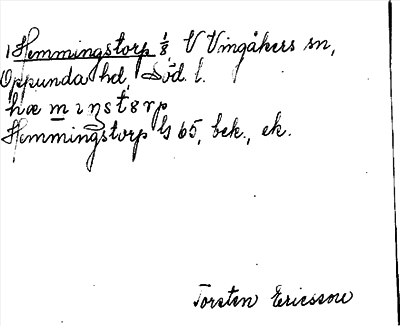 1 Hemmingstorp 1/8, V Vingåkers sn,
Oppunda hd, Söd. l.
hæmıŋstɔrp
Hemmingstorp G 65, bek., ek.
Torsten Ericsson